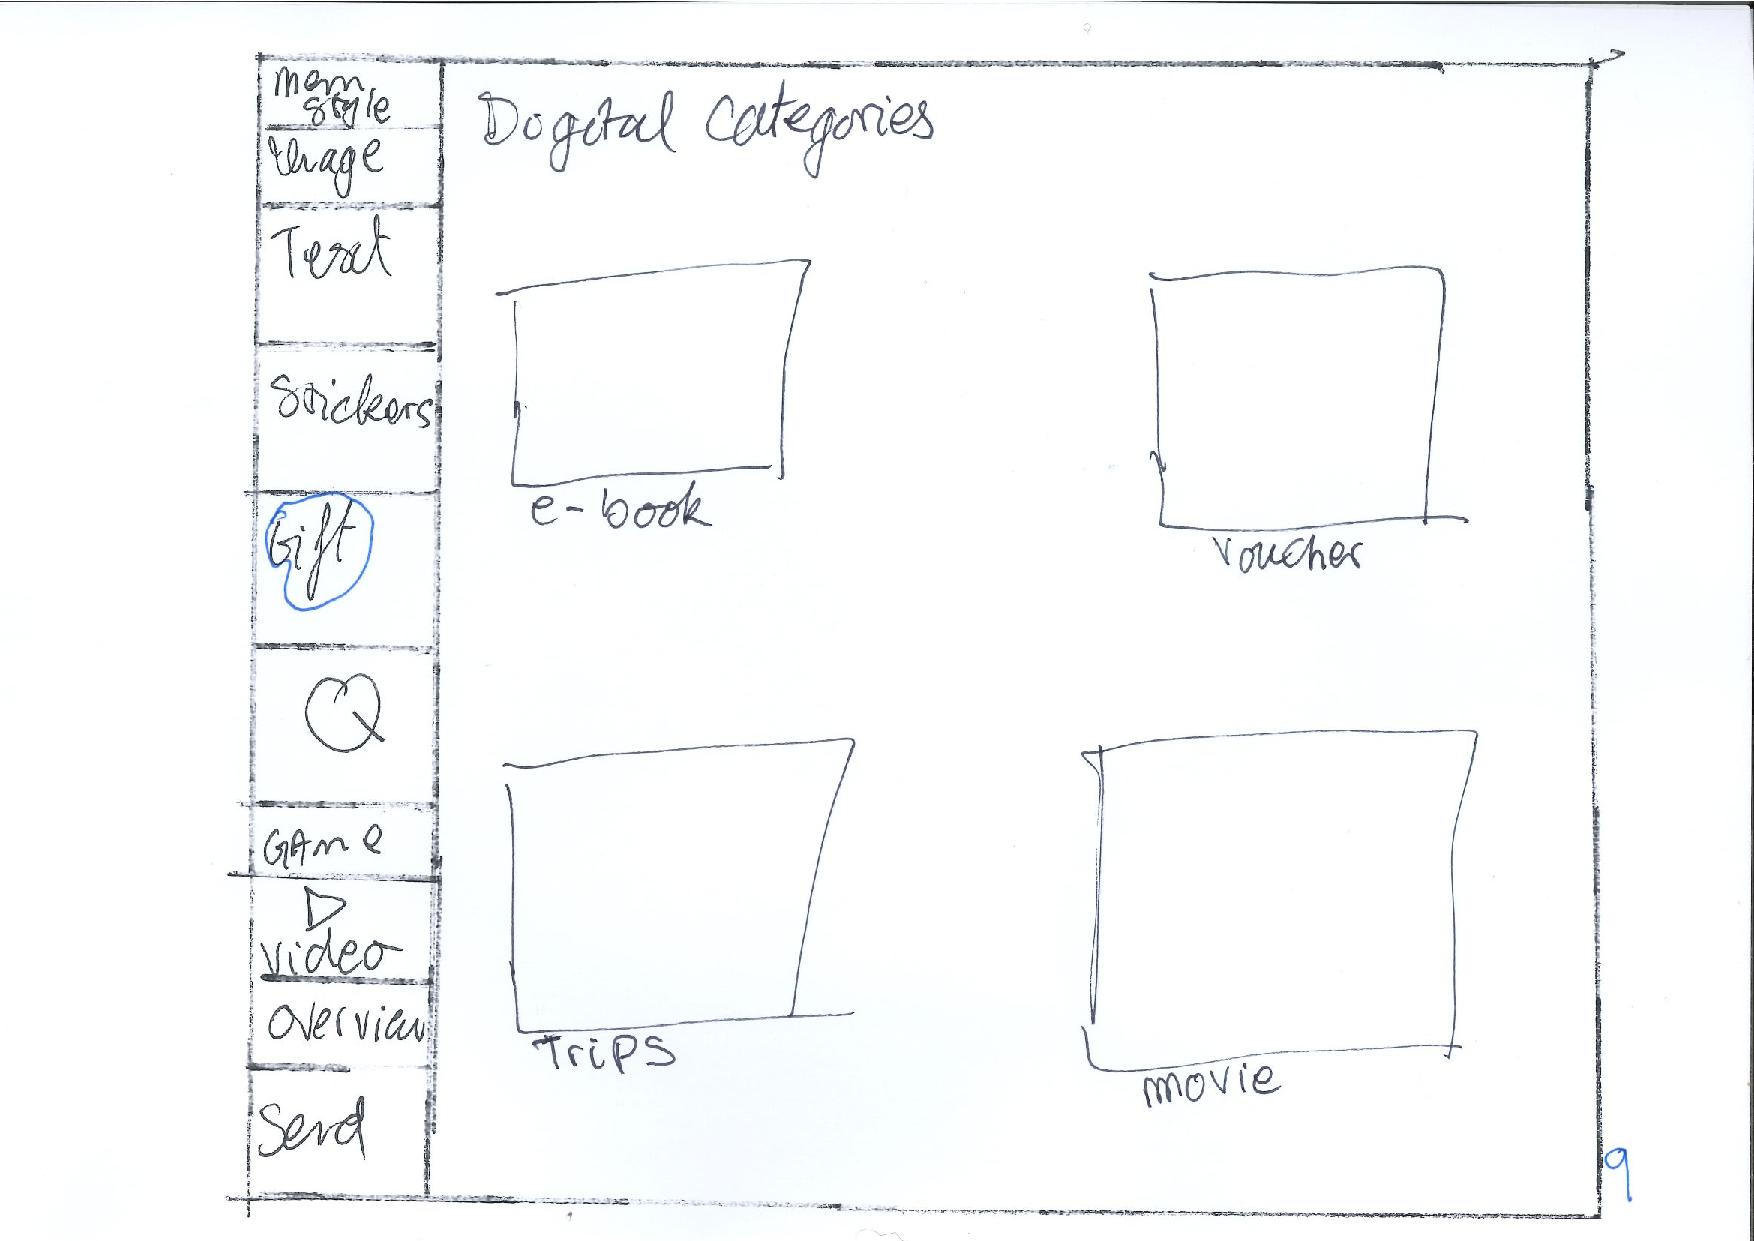 Mem
style
Image
Text
Stickers
Gift
GAME
video
Overview
Send
Dogital Categories
e-book
voucher
Trips
movie
9